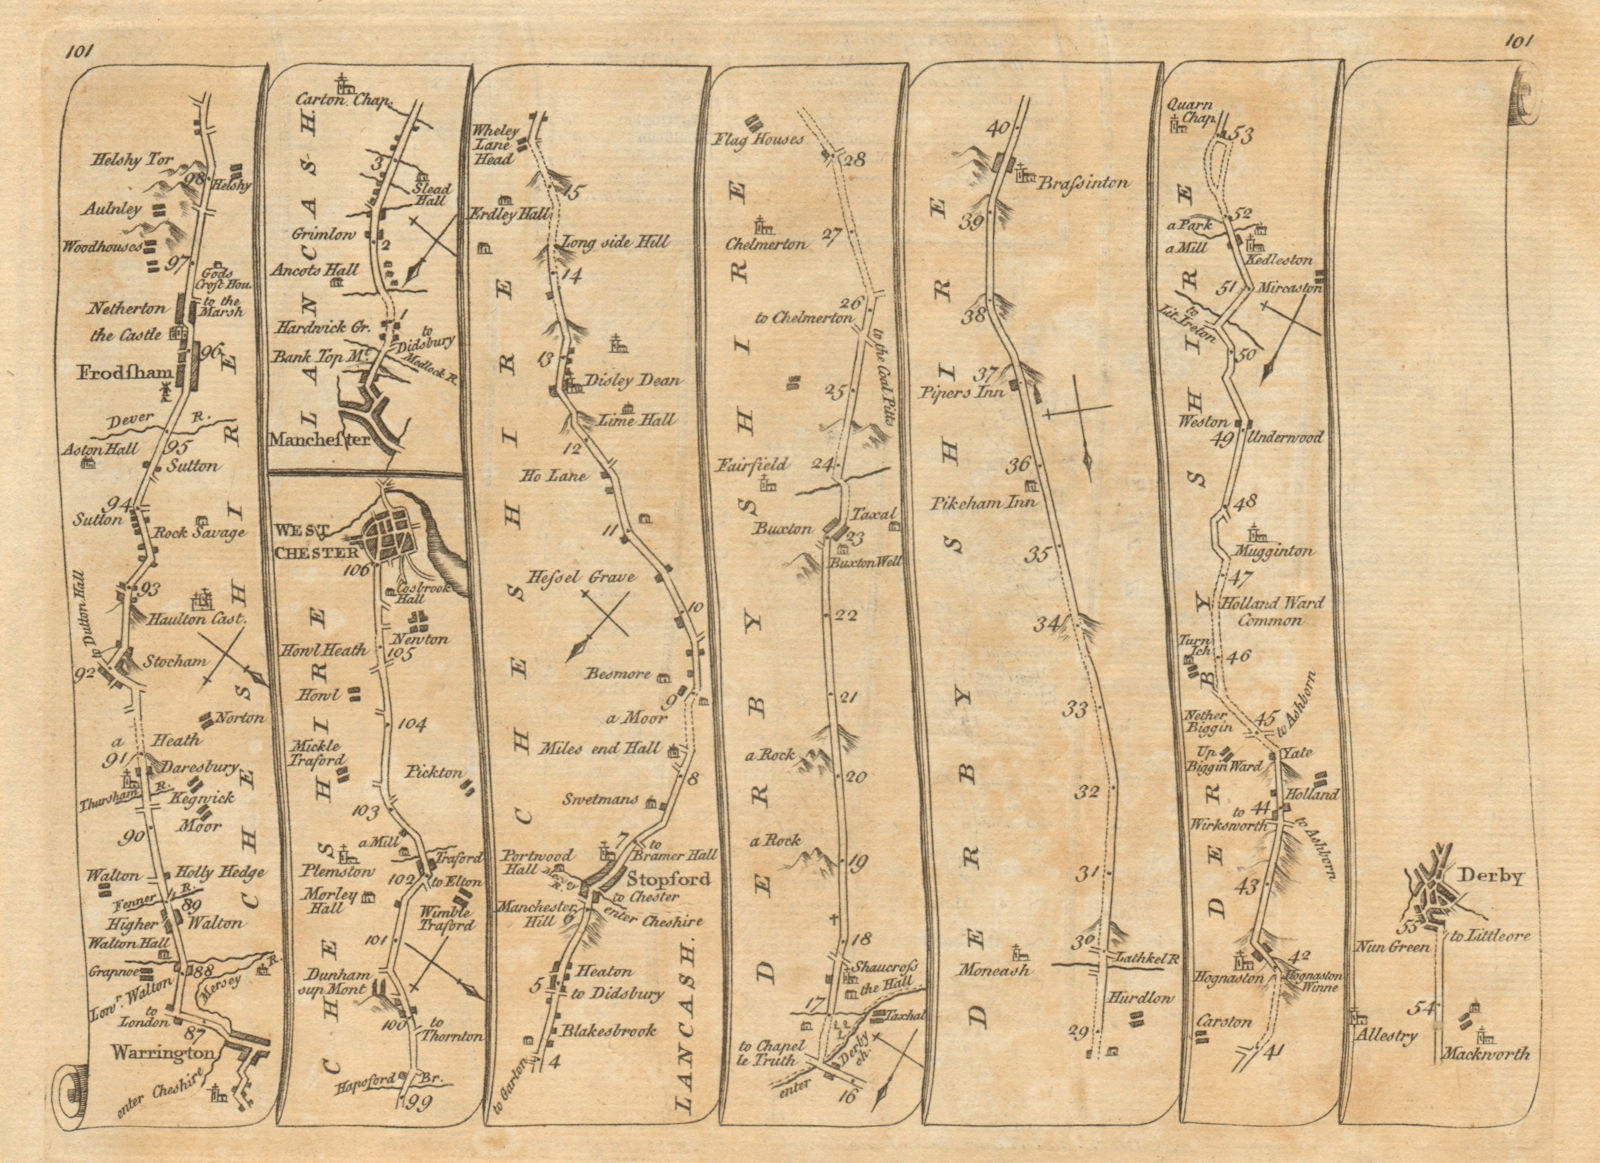 101
101
Helshy Tor
98
Helshy
Aulnley
Woodhouses
97
Gods
Croft Hou.
to the
Marsh
Netherton
the Castle
96
Frodsham
Dever R.
95
Aston Hall
Sutton
94
Sutton
Rock Savage
93
Haulton Cast.
to Dutton Hall
92
Stocham
Norton
a Heath
91
Daresbury
Thursham R.
Kegwick
Moor
90
Walton
Holly Hedge
Fenner R.
89
Higher Walton
Walton Hall
Grapnoe
88
Mersey R.
Lowr. Walton
to
London
87
Warrington
enter Cheshire
CHESHIRE
Carton Chap.
3
Slead
Hall
Grimlow
2
Ancots Hall
Hardwick Gr.
1
to
Didsbury
Bank Top Mt.
Medlock R.
Manchester
LANCASH.
WEST
CHESTER
106
Cosbrook
Hall
Newton
Howl Heath
105
Howl
104
Mickle
Traford
Pickton
103
a Mill
Plemston
Traford
102
to Elton
Morley
Hall
Wimble
Traford
101
Dunham
sup Mont
100
to
Thornton
Hapsford Br.
99
CHESHIRE
Wheley
Lane
Head
15
Erdley Hall
Long side Hill
14
13
Disley Dean
Lime Hall
12
Ho Lane
11
Hessel Grave
10
Besmore
9
a Moor
Miles end Hall
8
Swetmans
7
to
Bramer Hall
Portwood
Hall
Stopford
to Chester
Manchester
Hill
6
enter Cheshire
5
Heaton
to Didsbury
Blakesbrook
4
to Garton
CHESHIRE
LANCASH.
Flag Houses
28
Chelmerton
27
26
to Chelmerton
to the Coal Pitts
25
Fairfield
24
Buxton
Taxal
23
Buxton Well
22
21
a Rock
20
a Rock
19
18
Shaucross
the Hall
17
Taxhal
to Chapel
le Truth
enter Derby
sh.
16
DERBYSHIRE
40
Brassinton
39
38
37
Pipers Inn
36
Pikeham Inn
35
34
33
32
31
30
Moneash
Lathkel R
Hurdlon
29
DERBYSHIRE
Quarn
Chap.
53
52
a Park
a Mill
Kedleston
51
Mircaston
to
Lit. Ireton
50
Weston
49
Underwood
48
Mugginton
47
Holland Ward
Common
Turn
Ich
46
Nether
Biggin
45
to Ashborn
Up
Biggin Ward
Yate
Holland
to
Wirksworth
44
to Ashborn
43
42
Hognaston
Hognaston
Winne
Carston
41
DERBYSHIRE
Derby
55
Nun Green
to Littleore
54
Allestry
Mackworth